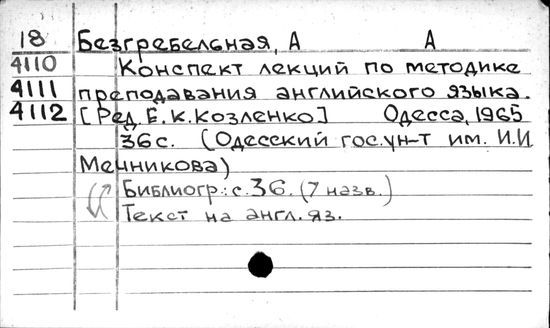 18 Безгребельная, А А
4110 Конспект лекций по методике
4111 преподавания английского языка.
4112 [Ред. Е.К.Козленко] Одесса, 1965
36с. (Одесский гос.ун-т им. И.И
Мечникова)
Библиогр.: с.36. (7 назв.)
Текст на англ.яз.